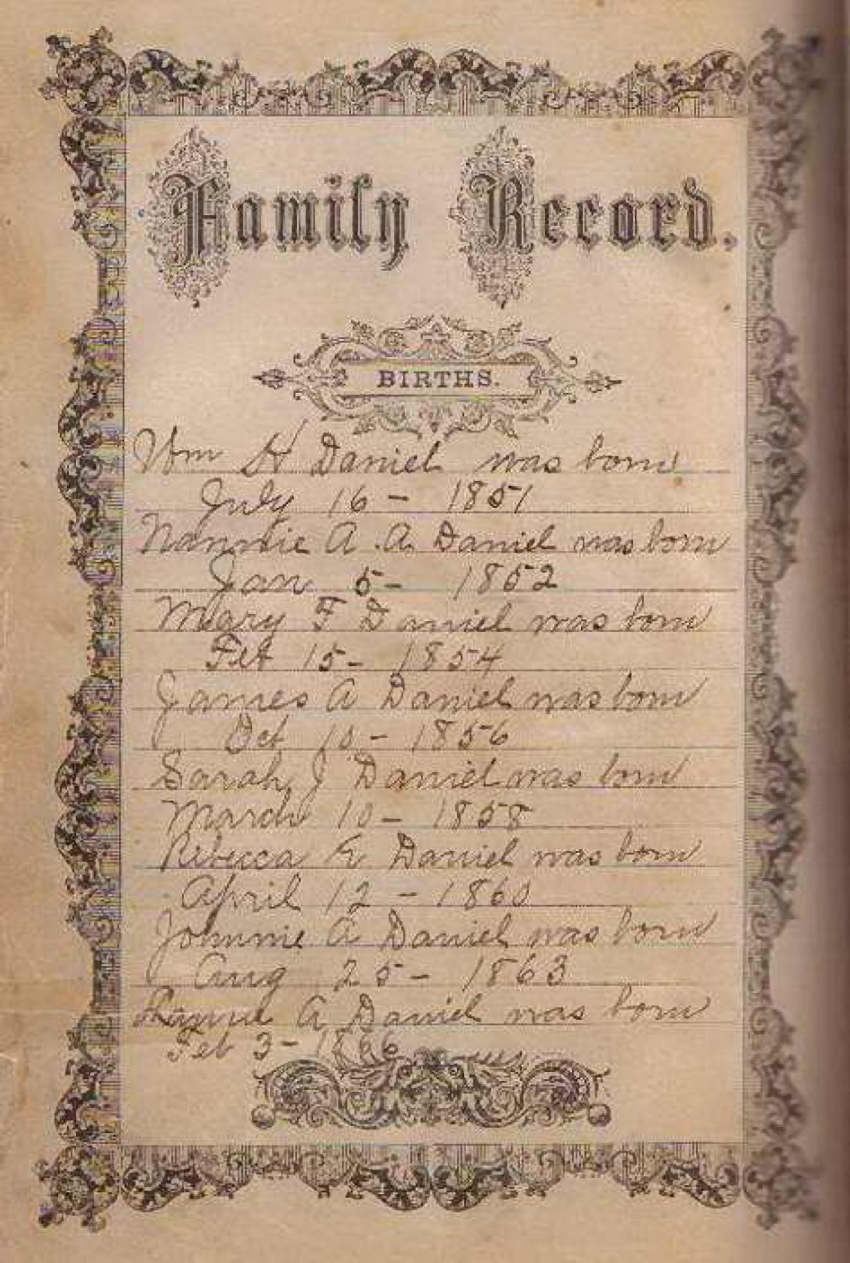 Family Record.
BIRTHS.
Wm H Daniel was born
July 16 - 1851
Nannie A. A. Daniel was born
Jan 5 - 1852
Mary F Daniel was born
Feb 15 - 1854
James A Daniel was born
Oct 10 - 1856
Sarah J Daniel was born
March 10 - 1858
Rebecca E Daniel was born
April 12 - 1860
Johnnie A Daniel was born
Aug 25 - 1863
A Daniel was born
Feb 3 - 1866